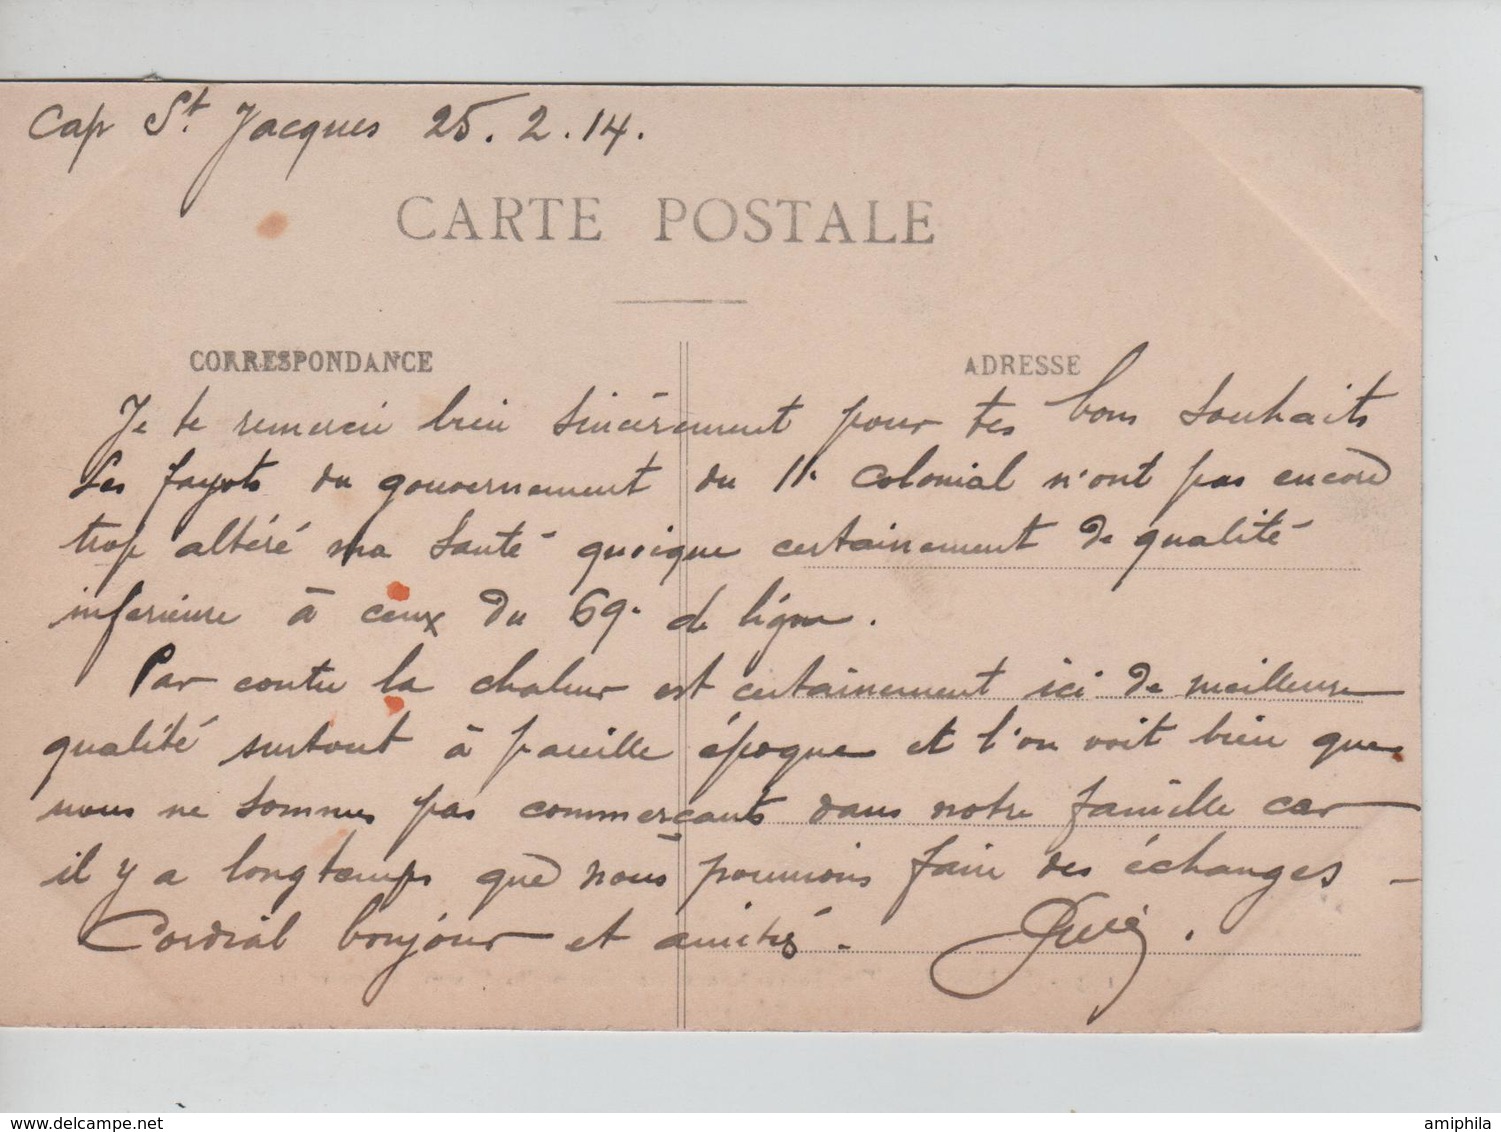 Cap St Jacques 25.2.14.
CARTE POSTALE
CORRESPONDANCE
ADRESSE
Je te remercie bien sincèrement pour tes bons souhaits
Les fayots du gouvernement du 11e colonial n'ont pas encore
trop altéré ma santé quoique certainement de qualité
inferieure à ceux du 69e de ligne.
Par contre la chaleur est certainement ici de meilleure
qualité surtout à pareille époque et l'on voit bien que
nous ne sommes pas commerçants dans notre famille car
il y a longtemps que nous pourrions faire des échanges -
Cordial bonjour et amitiés.
amiphila